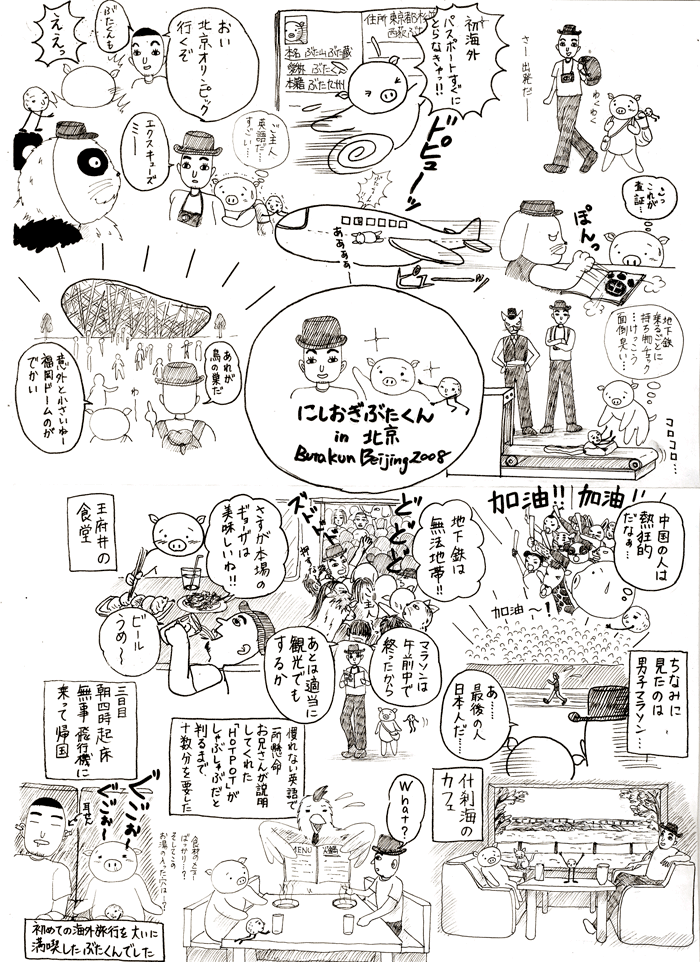 おい
北京オリンピック
行くぞ
ぶたくんも
ええっ
初海外
パスポートすぐに
とらなきゃっ!!
本名 ぶた山ぶた蔵
本籍 ぶた九州
ドピューッ
さー出発だー
わくわく
エクスキューズ
ミー
ご主人
英語だ…
すごい…
あぁぁぁぁ
これが
査証…
ぽんっ
地下鉄
乗るごとに
持ち物チェック
…けっこう
面倒臭い…
コロコロ…
あれが
鳥の巣だ
わ
意外と小さいねー
福岡ドームのが
でかい
にしおぎぶたくん
in 北京
Butakun Beijing 2008
王府井の
食堂
さすが本場の
ギョーザは
美味しいわ!!
ビール
うめ〜
ズドドド
どどど
地下鉄は
無法地帯!!
主人
加油!! 加油!!
加油〜!
中国の人は
熱狂的
だなぁ…
ちなみに
見たのは
男子マラソン…
あ…
最後の人
日本人だ…
マラソンは
午前中で
終ったから
あとは適当に
観光でも
するか
三日目
朝四時起床
無事飛行機に
乗って帰国
ぐごぉ〜
ぐごぉ〜
耳せん
初めての海外旅行を大いに
満喫したぶたくんでした
慣れない英語で
一所懸命
お兄さんが説明
してくれた
「HOTPOT」が
しゃぶしゃぶだと
判るまで
十数分を要した
What?
MENU
火鍋
そしてこの
お湯の入った穴は…?
什刹海の
カフェ